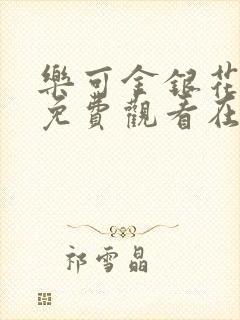 樂可金銀花
免費觀看在
祁雪晶